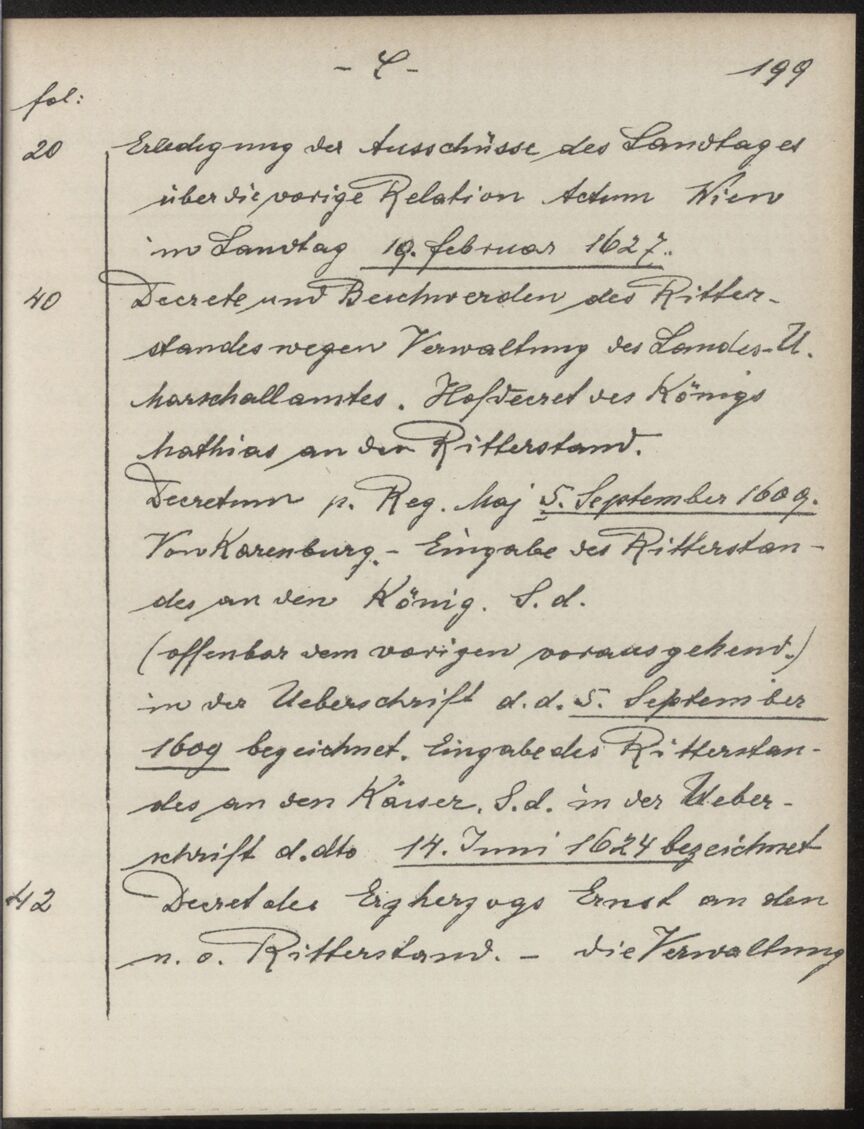 - 4 - 199
fol:
20 Erledigung der Ausschüsse des Landtages
über die vorige Relation Actum Wien
im Landtag 19. februar 1627.
40 Decrete und Beschwerden des Ritter-
standes wegen Verwaltung des Landes-U.
Marschallamtes. Hofdecret des Königs
Mathias an den Ritterstand.
Decretum p. Reg. Maj 5. September 1609.
Von Karenburg. - Eingabe des Ritterstan-
des an den König. S. d.
(offenbar dem vorigen vorausgehend.)
in der Ueberschrift d. d. 5. September
1609 bezeichnet. Eingabe des Ritterstan-
des an den Kaiser. S. d. in der Ueber-
schrift d. dto 14. Juni 1624 bezeichnet
42 Decret des Erzherzogs Ernst an den
n. o. Ritterstand. - die Verwaltung